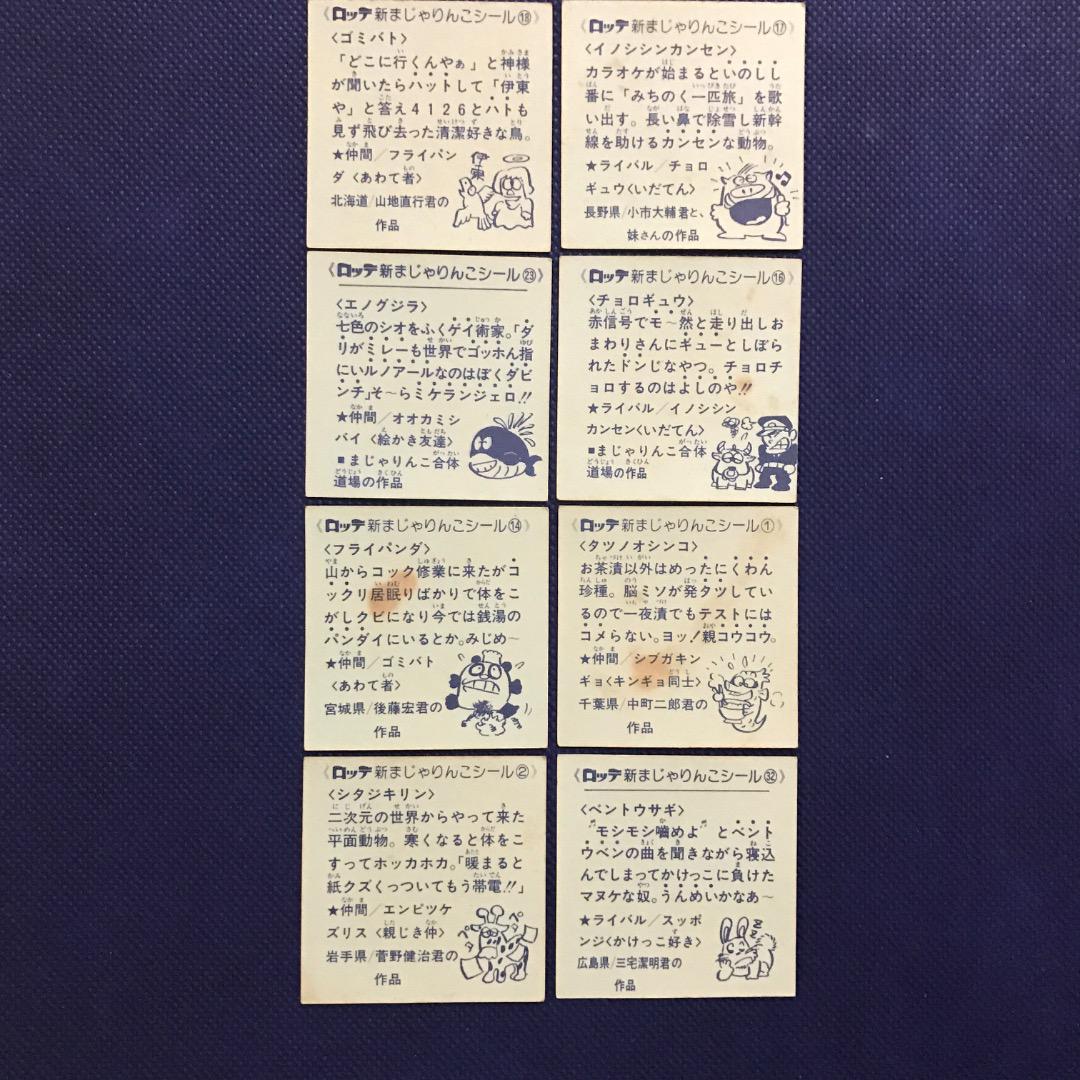 《ロッテ新まじゃりんこシール⑱》
〈ゴミバト〉
「どこに行くんやぁ」と神様
が聞いたらハットして「伊東
や」と答え4126とハトも
見ず飛び去った清潔好きな鳥。
★仲間/フライパン
ダ〈あわて者〉
北海道/山地直行君の
作品
伊東
《ロッテ新まじゃりんこシール⑰》
〈イノシシンカンセン〉
カラオケが始まるといのしし
番に「みちのく一匹旅」を歌
い出す。長い鼻で除雪し新幹
線を助けるカンセンな動物。
★ライバル/チョロ
ギュウ〈いだてん〉
長野県/小市大輔君と、
妹さんの作品
《ロッテ新まじゃりんこシール㉓》
〈エノグジラ〉
七色のシオをふくゲイ術家。「ダ
リがミレーも世界でゴッホん指
にいルノアールなのはぼくダビ
ンチ」そ〜らミケランジェロ!!
★仲間/オオカミシ
バイ〈絵かき友達〉
■まじゃりんこ合体
道場の作品
《ロッテ新まじゃりんこシール⑯》
〈チョロギュウ〉
赤信号でモ〜然と走り出しお
まわりさんにギューとしぼら
れたドンじなやつ。チョロチ
ョロするのはよしのや!!
★ライバル/イノシシン
カンセン〈いだてん〉
■まじゃりんこ合体
道場の作品
《ロッテ新まじゃりんこシール⑭》
〈フライパンダ〉
山からコック修業に来たがコ
ックリ居眠りばかりで体をこ
がしクビになり今では銭湯の
パンダイにいるとか。みじめ〜
★仲間/ゴミバト
〈あわて者〉
宮城県/後藤宏君の
作品
《ロッテ新まじゃりんこシール①》
〈タツノオシンコ〉
お茶漬以外はめったにくわん
珍種。脳ミソが発タツしてい
るので一夜漬でもテストには
コメらない。ヨッ!親コウコウ。
★仲間/シブガキン
ギョ〈キンギョ同士〉
千葉県/中町二郎君の
作品
《ロッテ新まじゃりんこシール②》
〈シタジキリン〉
二次元の世界からやって来た
平面動物。寒くなると体をこ
すってホッカホカ。「暖まると
紙クズくっついてもう帯電!!」
★仲間/エンピツケ
ズリス〈親じき仲〉
岩手県/菅野健治君の
作品
ペタ
ペタ
《ロッテ新まじゃりんこシール㉜》
〈ベントウサギ〉
♬モシモシ噛めよ♬とベント
ウベンの曲を聞きながら寝込
んでしまってかけっこに負けた
マヌケな奴。うんめいかなあ〜
★ライバル/スッポ
ンジ〈かけっこ好き〉
広島県/三宅潔明君の
作品
ZZZ